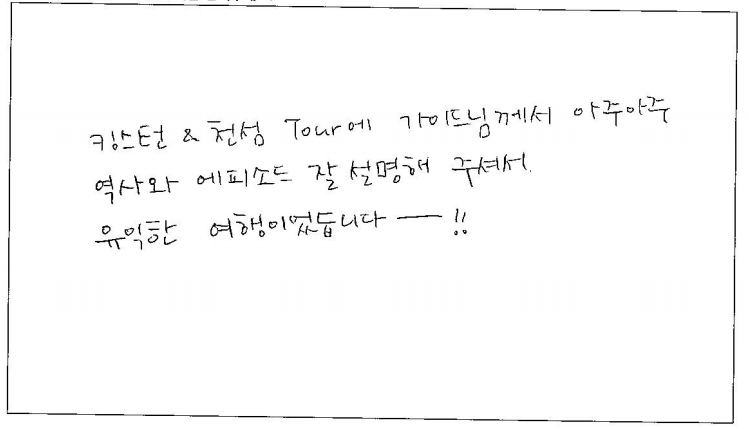 킹스턴 & 천섬 Tour에 가이드님께서 아주아주
역사와 에피소드 잘 설명해 주셔서
유익한 여행이었듭니다 — !!